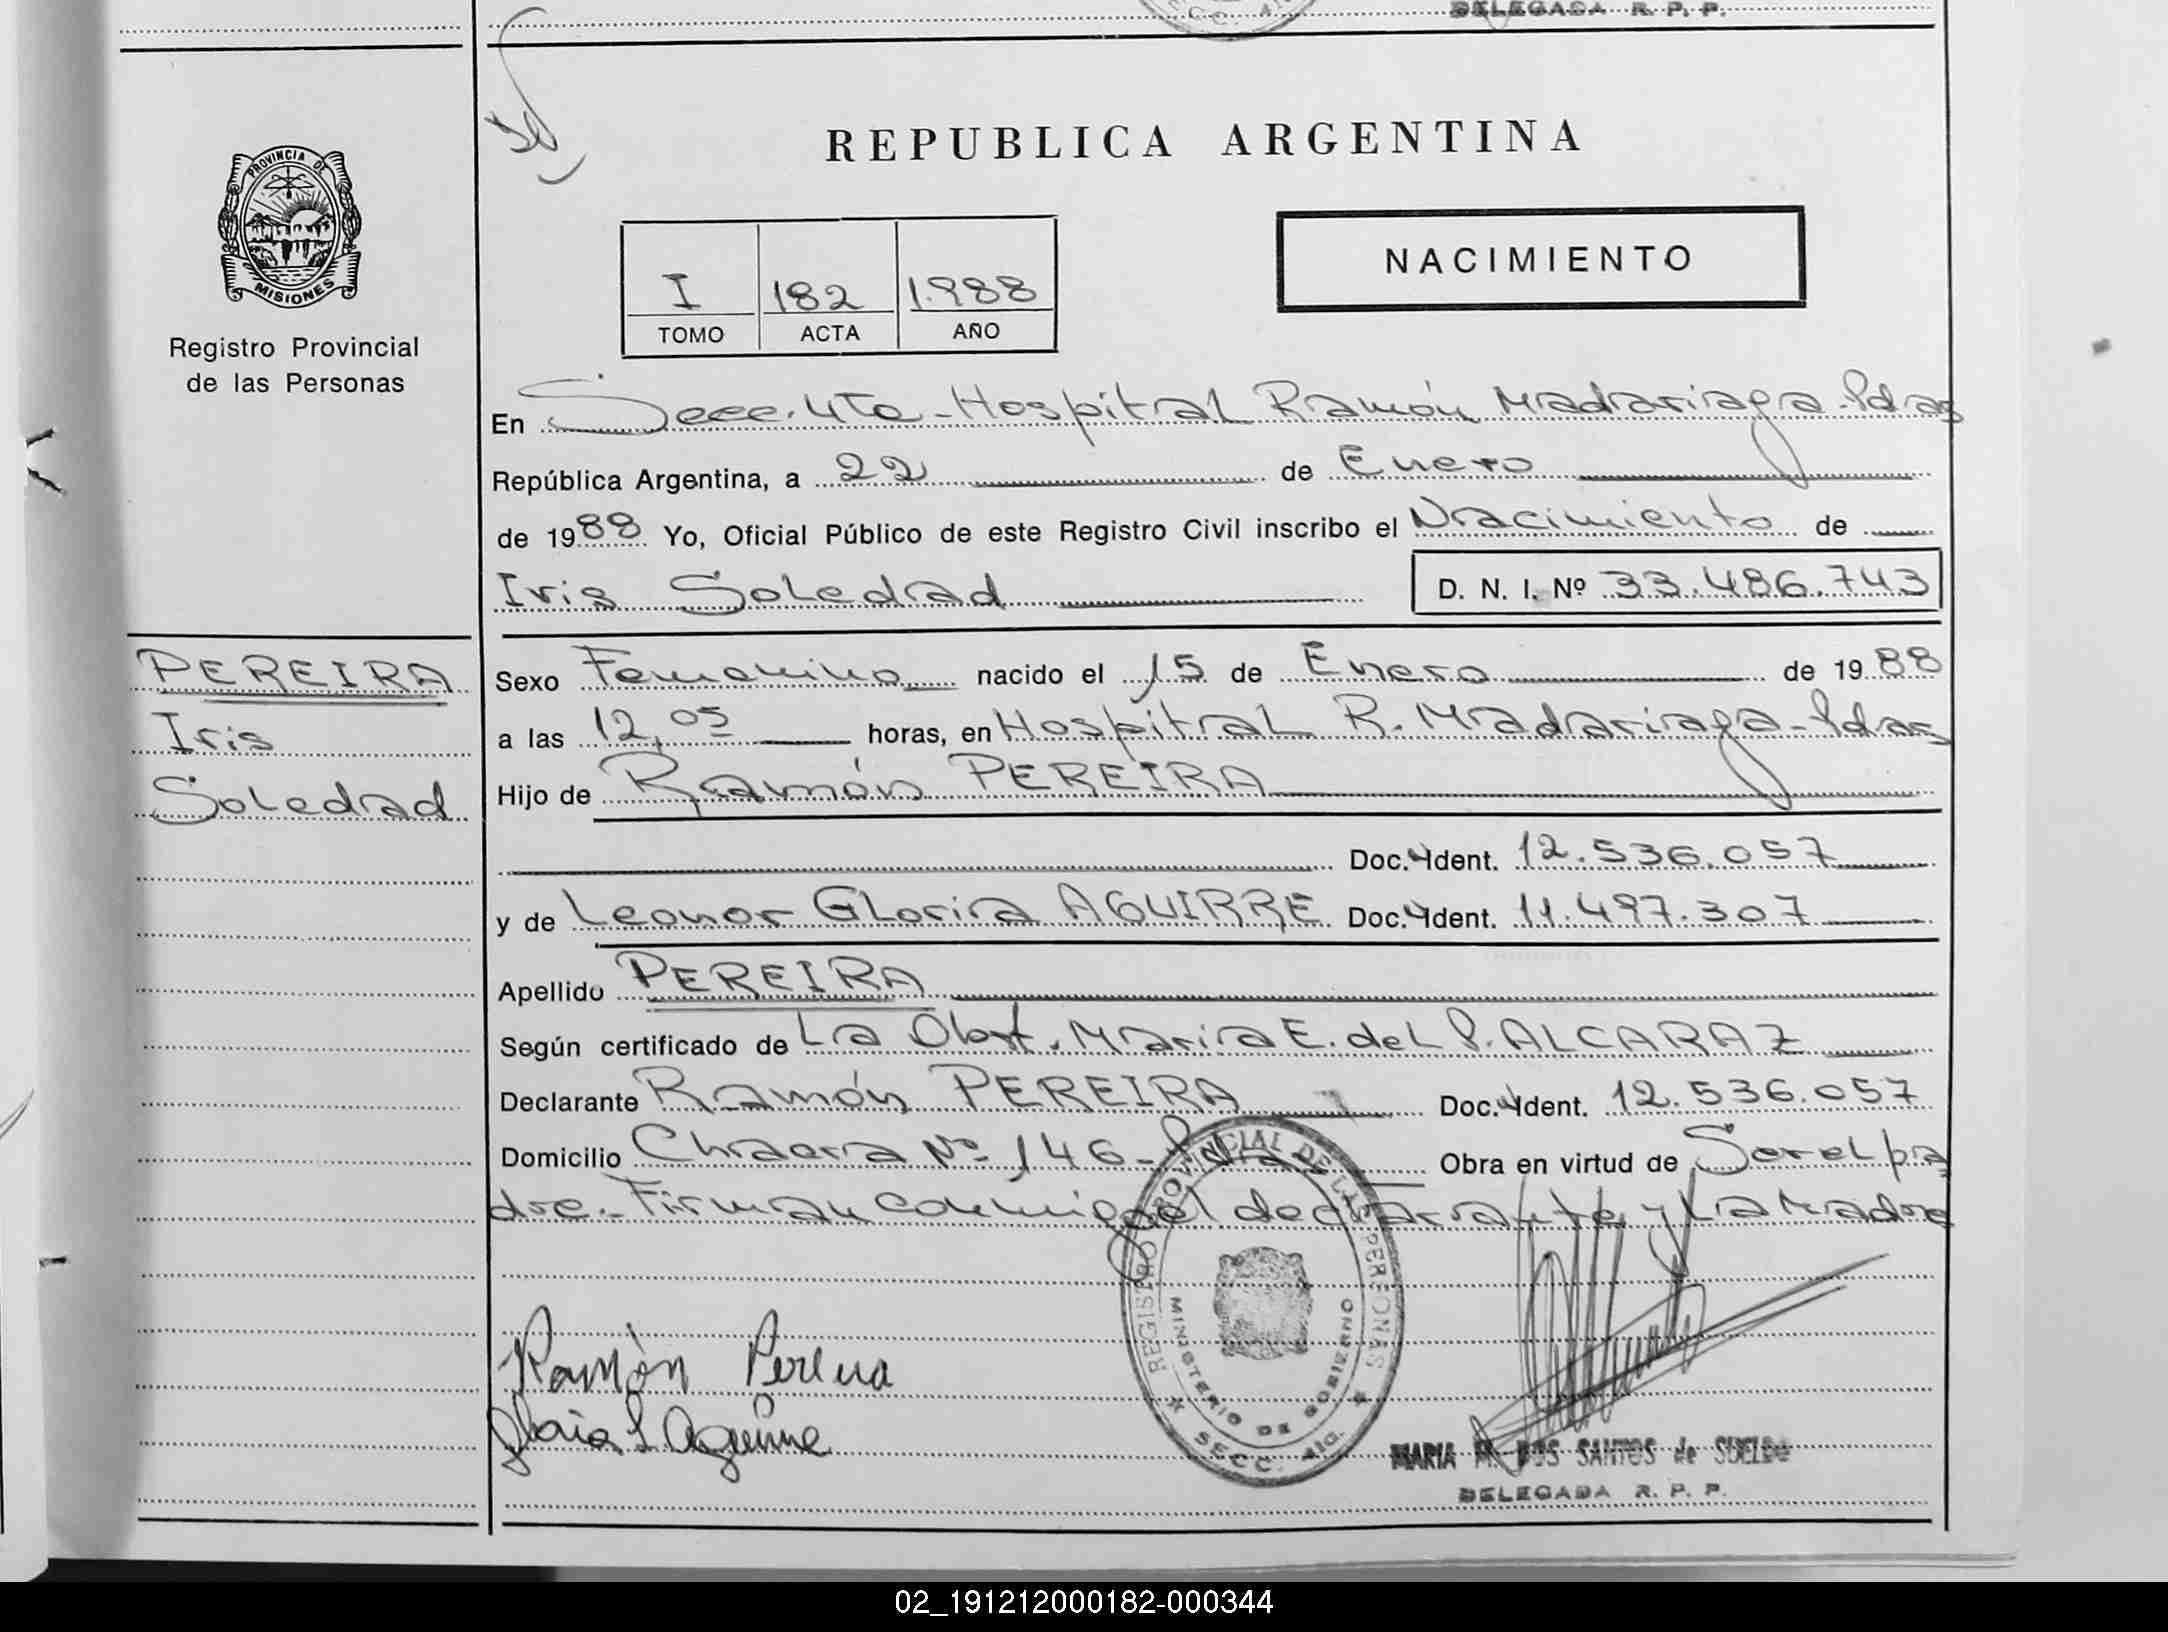 DELEGADA R. P. P.
REPUBLICA ARGENTINA
PROVINCIA DE
MISIONES
Registro Provincial
de las Personas
I 182 1.988
TOMO ACTA AÑO
NACIMIENTO
En Secc. 4ta - Hospital Ramón Madariaga - Pdas
República Argentina, a 22 de Enero
de 1988 Yo, Oficial Público de este Registro Civil inscribo el Nacimiento de
Iris Soledad D. N. I. Nº 33.486.743
PEREIRA
Iris
Soledad
Sexo Femenino nacido el 15 de Enero de 1988
a las 12,05 horas, en Hospital R. Madariaga - Pdas
Hijo de Ramón PEREIRA
Doc. Ident. 12.536.057
y de Leonor Gloria AGUIRRE Doc. Ident. 11.497.307
Apellido PEREIRA
Según certificado de La Obst. Maria E. del P. ALCARAZ
Declarante Ramón PEREIRA Doc. Ident. 12.536.057
Domicilio Chacra Nº 146 - Pdas Obra en virtud de Ser el pa
dre.- Firman conmigo el declarante y La Madre
REGISTRO PROVINCIAL DE LAS PERSONAS
MINISTERIO DE GOBIERNO
SECC. 4ta.
Ramón Pereira
Gloria L Aguirre
MARIA M. DOS SANTOS de SUELDO
DELEGADA R. P. P.
02_191212000182-000344